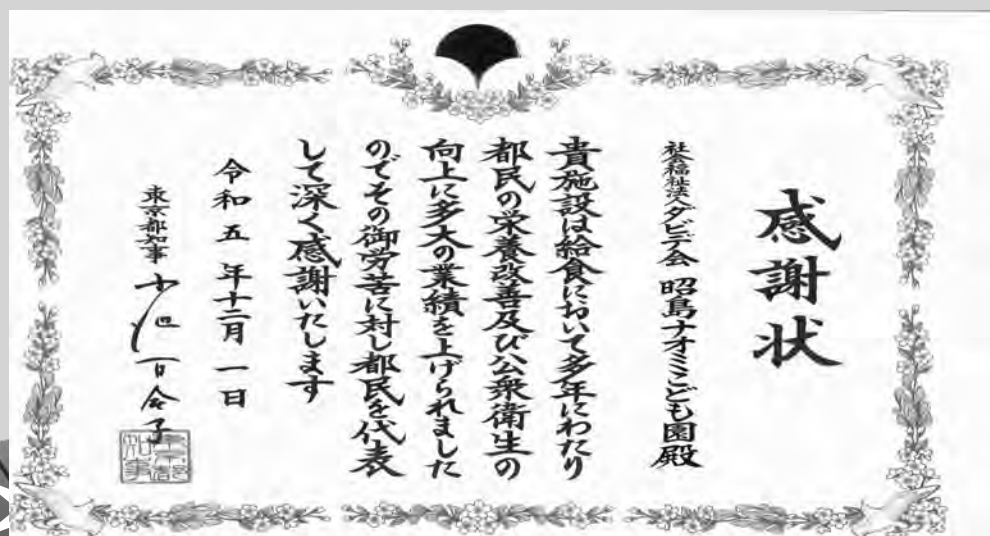 感謝状
社会福祉法人ダビデ会 昭島ナオミこども園殿
貴施設は給食において多年にわたり
都民の栄養改善及び公衆衛生の
向上に多大の業績を上げられました
のでその御労苦に対し都民を代表
して深く感謝いたします
令和五年十二月一日
東京都知事 小池百合子
東京都知事